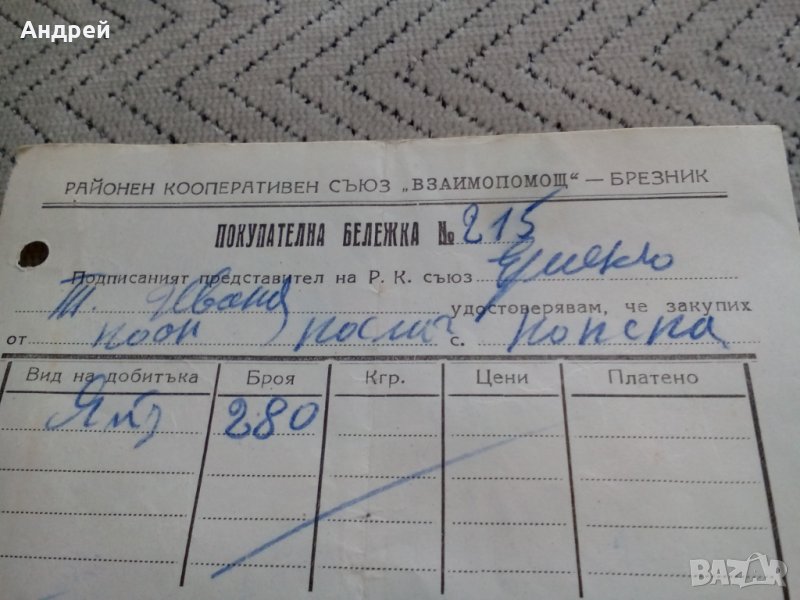 Андрей
РАЙОНЕН КООПЕРАТИВЕН СЪЮЗ „ВЗАИМОПОМОЩ“ — БРЕЗНИК
ПОКУПАТЕЛНА БЕЛЕЖКА № 215
Подписаният представител на Р. К. съюз
Т. Иванов удостоверявам, че закупих
от кооп с. Конска
Вид на добитъка Броя Кгр. Цени Платено
280
BAZAR